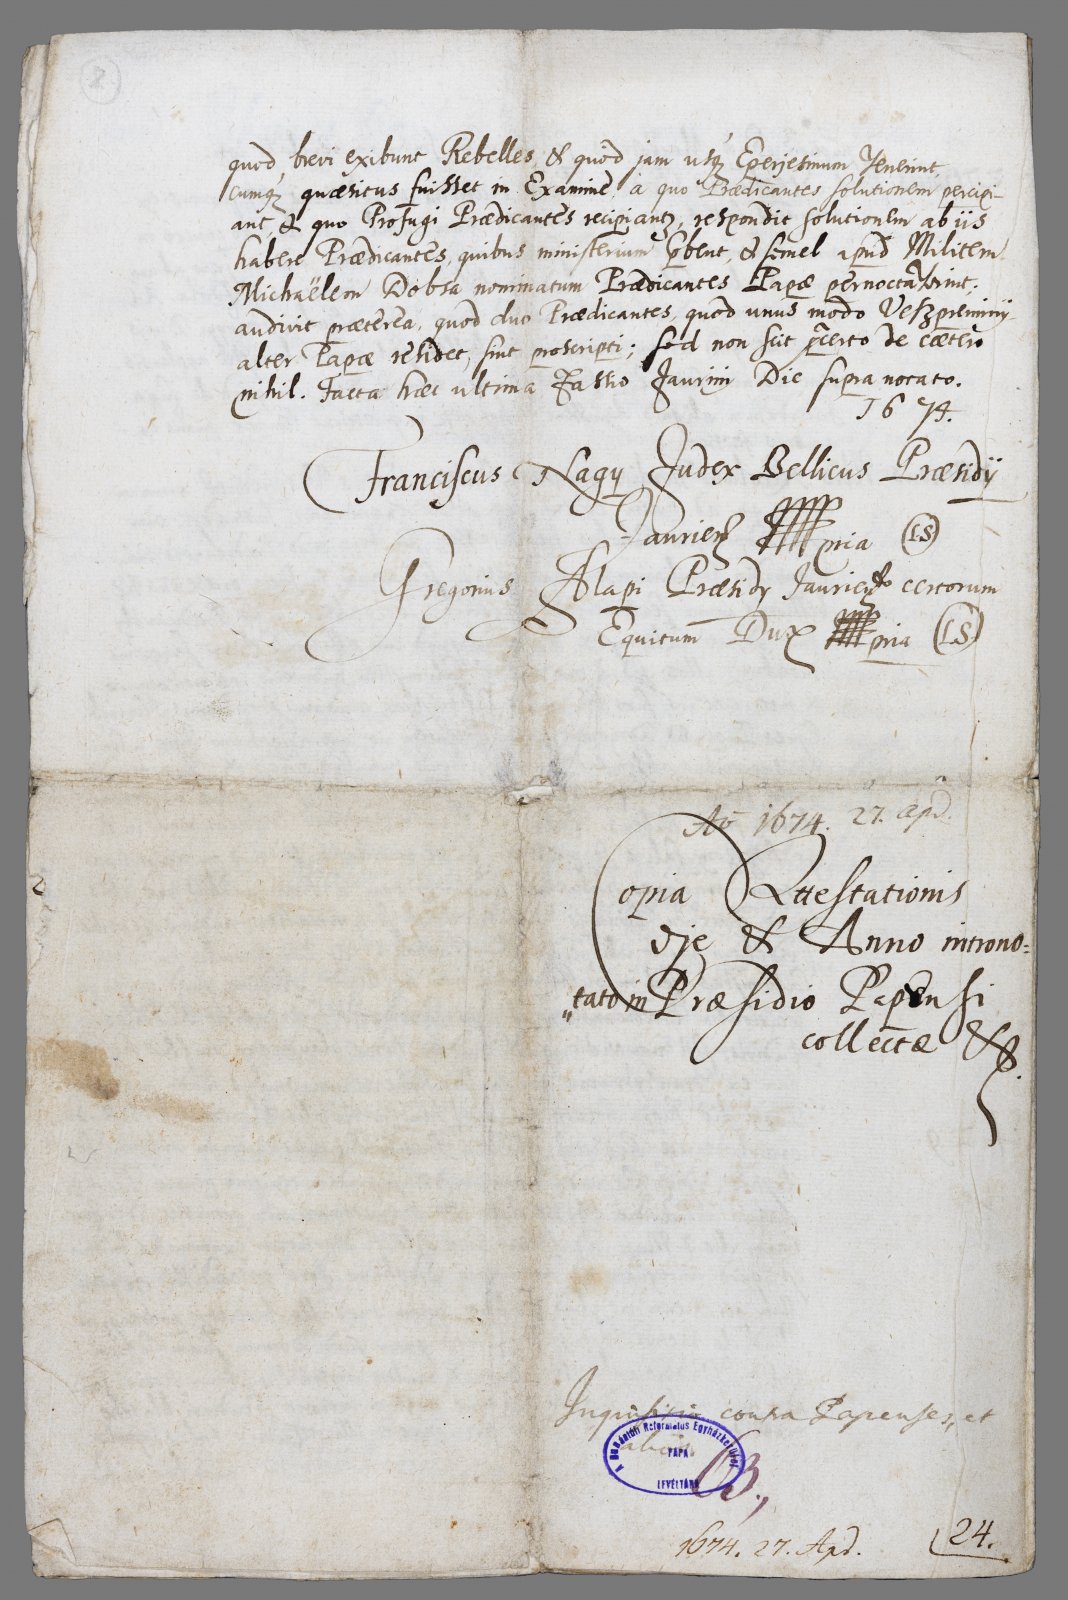 2.
quod brevi exibunt Rebelles, & quod jam usq Eperjesinum venerint,
cumq quæsitus fuisset in Examine à quo Prædicantes solutionem percipi-
ant, & quo Profugi Prædicantes recipiantq, respondit solutionem ab iis
habere Prædicantes, quibus ministerium præbent, & semel apud Militem
Michaëlem Dobsa nominatum Prædicantes Papæ pernoctaverint;
audivit præterea, quod duo Prædicantes, quod unus modo Veszpreminij
alter Papæ residet, sint proscripti; sed non scit p certo de cætero
nihil. Facta hæc ultima Fassio Jaurini Die supra notato.
1674.
Franciscus Nagy Judex Bellicus Præsidij
Jaurien pria (LS)
Gregorius Alapi Præsidy Jaurien certorum
Equitum Dux pria (LS)
Aō 1674. 27. Apr.
Copia Attestationis
Die & Anno introno=
„tato in Præsidio Papensi
collectæ &.
Inquisitio contra Papenses, et
alios.
A Dunántúli Református Egyházkerület
PÁPA
LEVÉLTÁRA
B.,
1674. 27. Apr.
24.